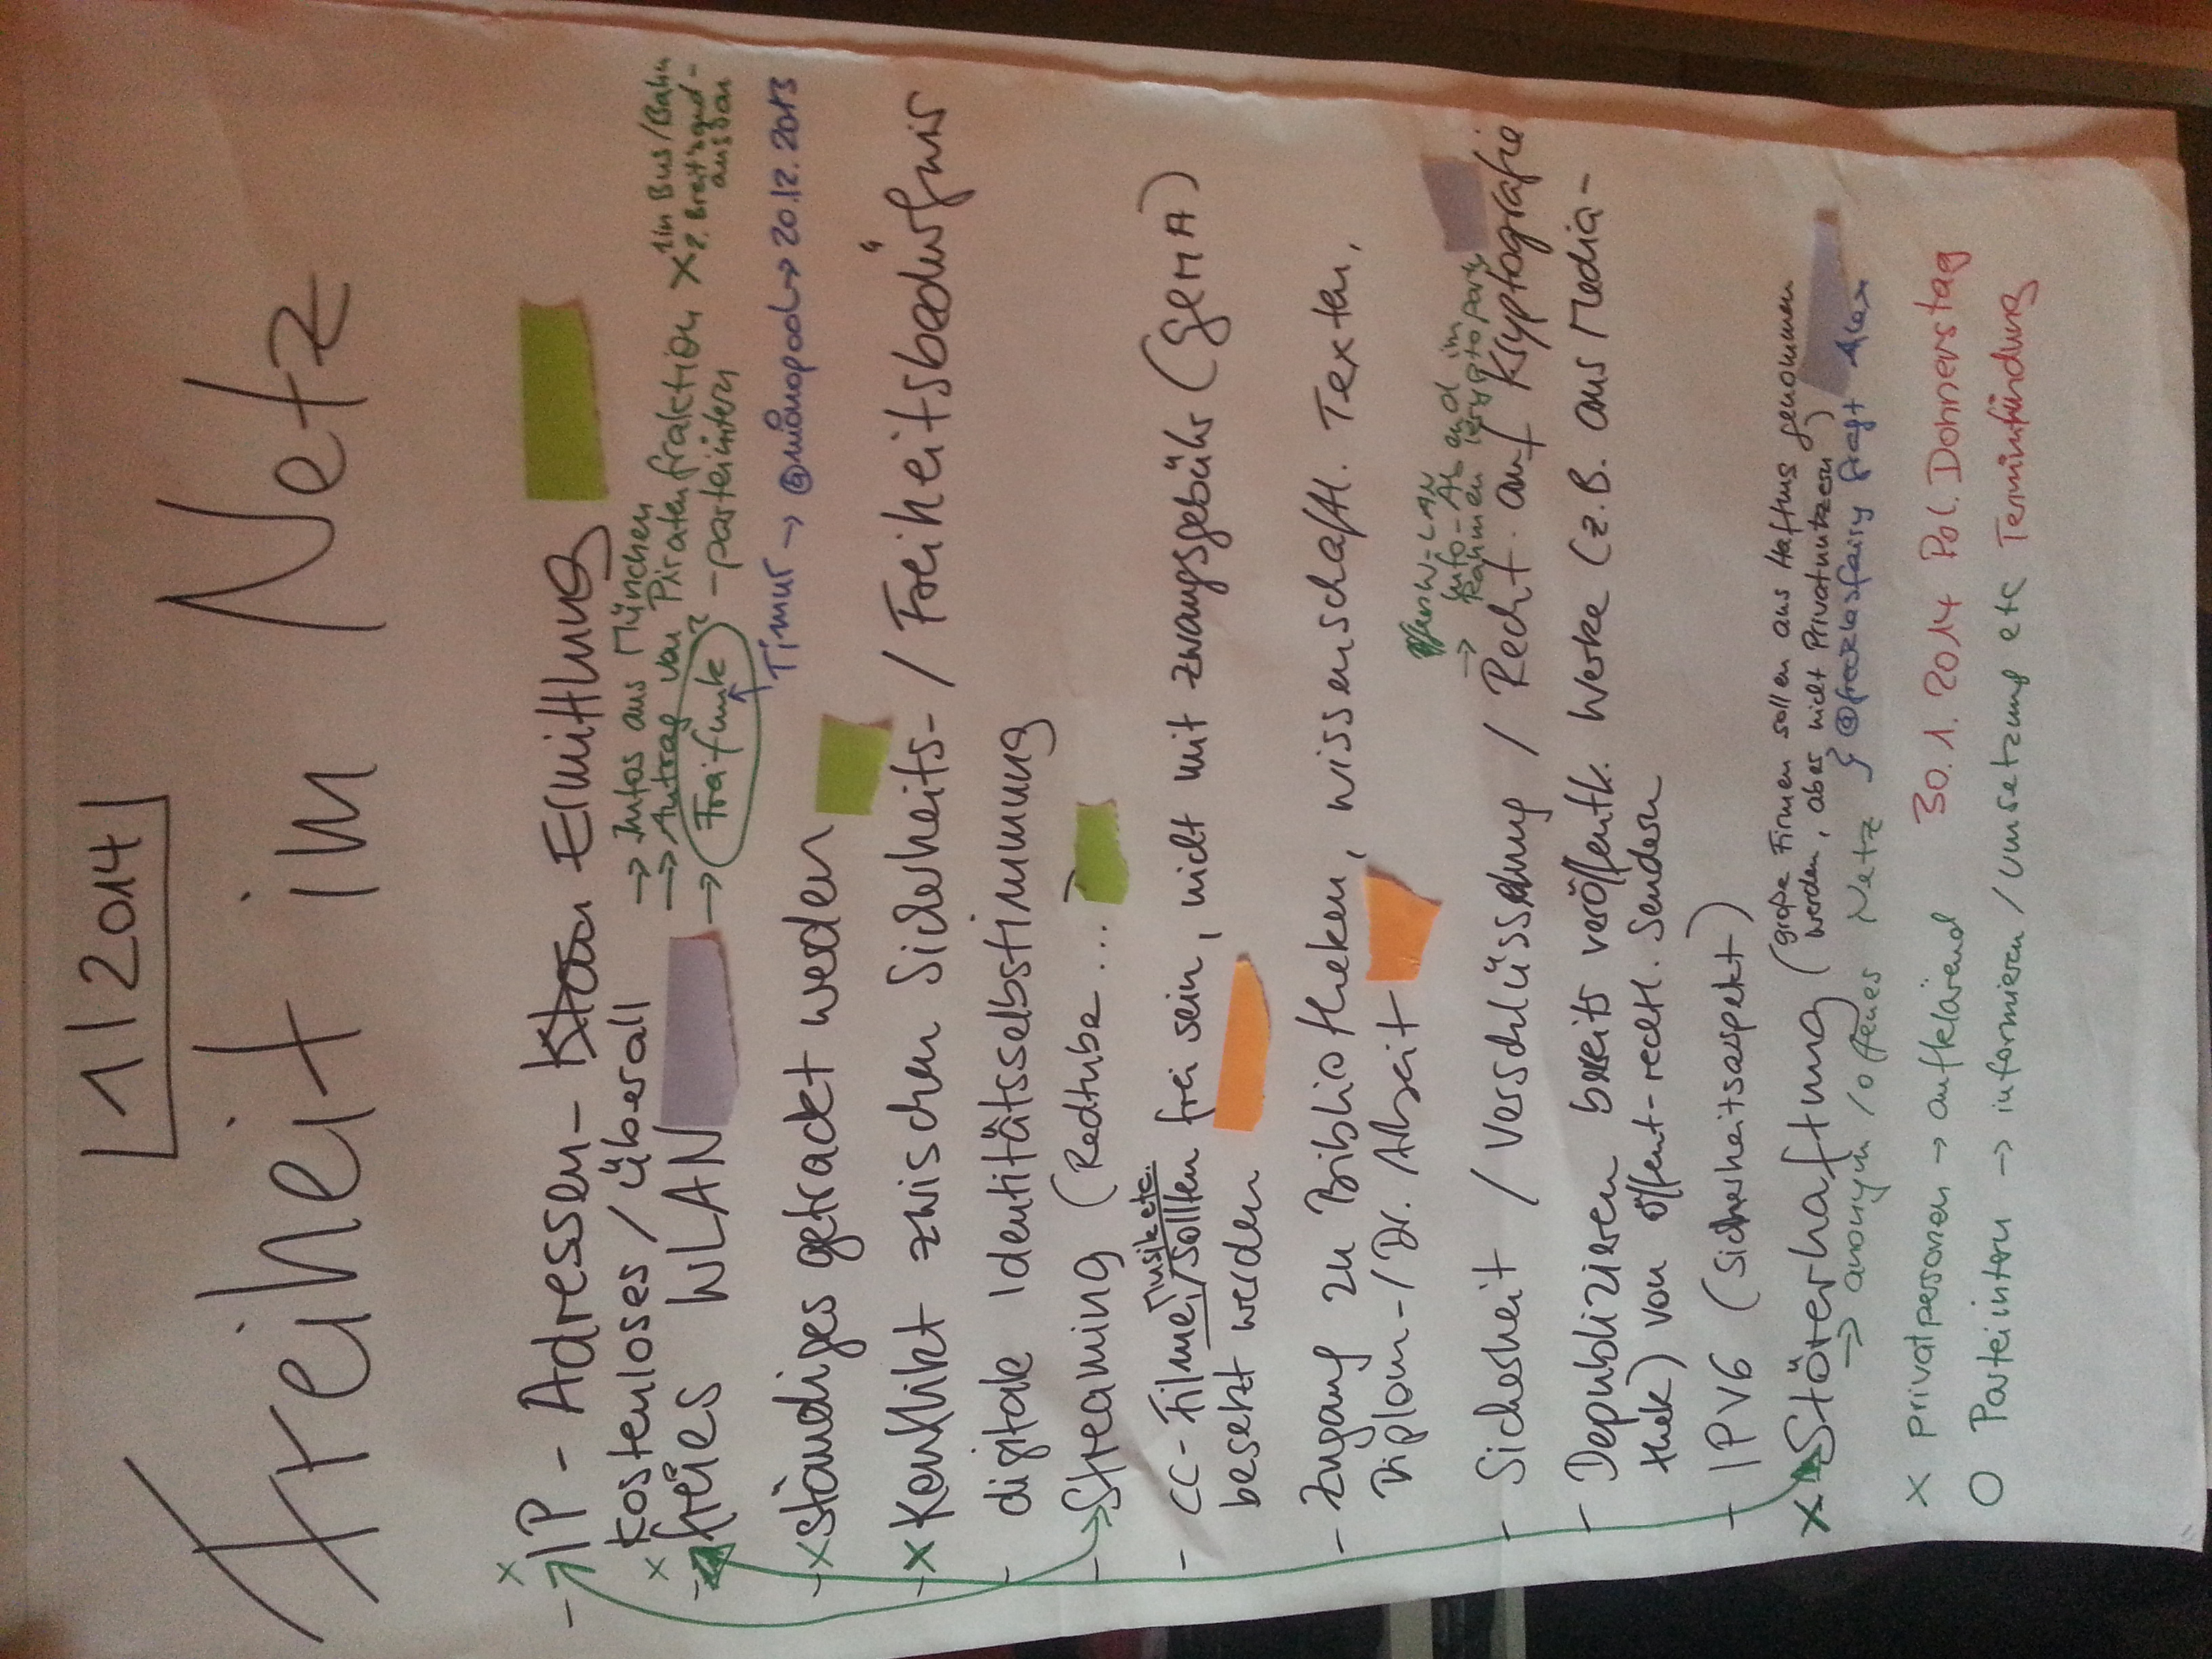 1/2014
Freiheit im Netz
x
- IP-Adressen- Ermittlung
kostenloses/überall
x
- freies WLAN
→ Infos aus München
→ Antrag von Piratenfraktion x 1 in Bus/Bahn
2. Breitband-
ausbau
→ Freifunk ? - parteiintern
Timur → @monopool → 20.12.2013
-x ständiges getrackt werden
-x Konflikt zwischen Sicherheits-/Freiheitsbedürfnis
- digitale Identitätsselbstimmung
- Streaming (Redtube...)
- CC-Filme, Musik etc. sollten frei sein, nicht mit Zwangsgebühr (GEMA)
besetzt werden
- Zugang zu Bibliotheken, wissenschaftl. Texten,
Diplom-/Dr. Arbeit
offenes W-LAN
→ Info-Abend im
Rahmen Cryptoparty
- Sicherheit / Verschlüsselung / Recht auf Kryptografie
- Depublizieren bereits veröffentl. Werke (z.B. aus Media-
thek) von öffent-rechtl. Sendern
- IPV6 (Sicherheitsaspekt)
x Störerhaftung (große Firmen sollen aus Haftung genommen
werden, aber nicht Privatnutzern)
→ anonym / offenes Netz } fragt Alex
x Privatpersonen → aufklärend 30.1.2014 Pol. Donnerstag
O Parteiintern → informieren / Umsetzung etc Terminfindung